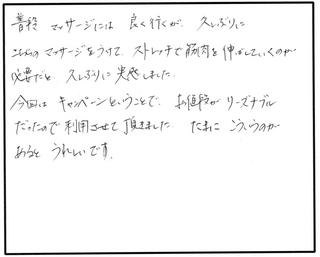 普段 マッサージには 良く行くが、久しぶりに
こちらの マッサージをうけて、ストレッチで筋肉を伸ばしていくのが
必要だと、久しぶりに実感しました。
今回は キャンペーンということで、お値段が リーズナブル
だったので利用させて頂きました。たまに こういうのが
あると うれしいです。